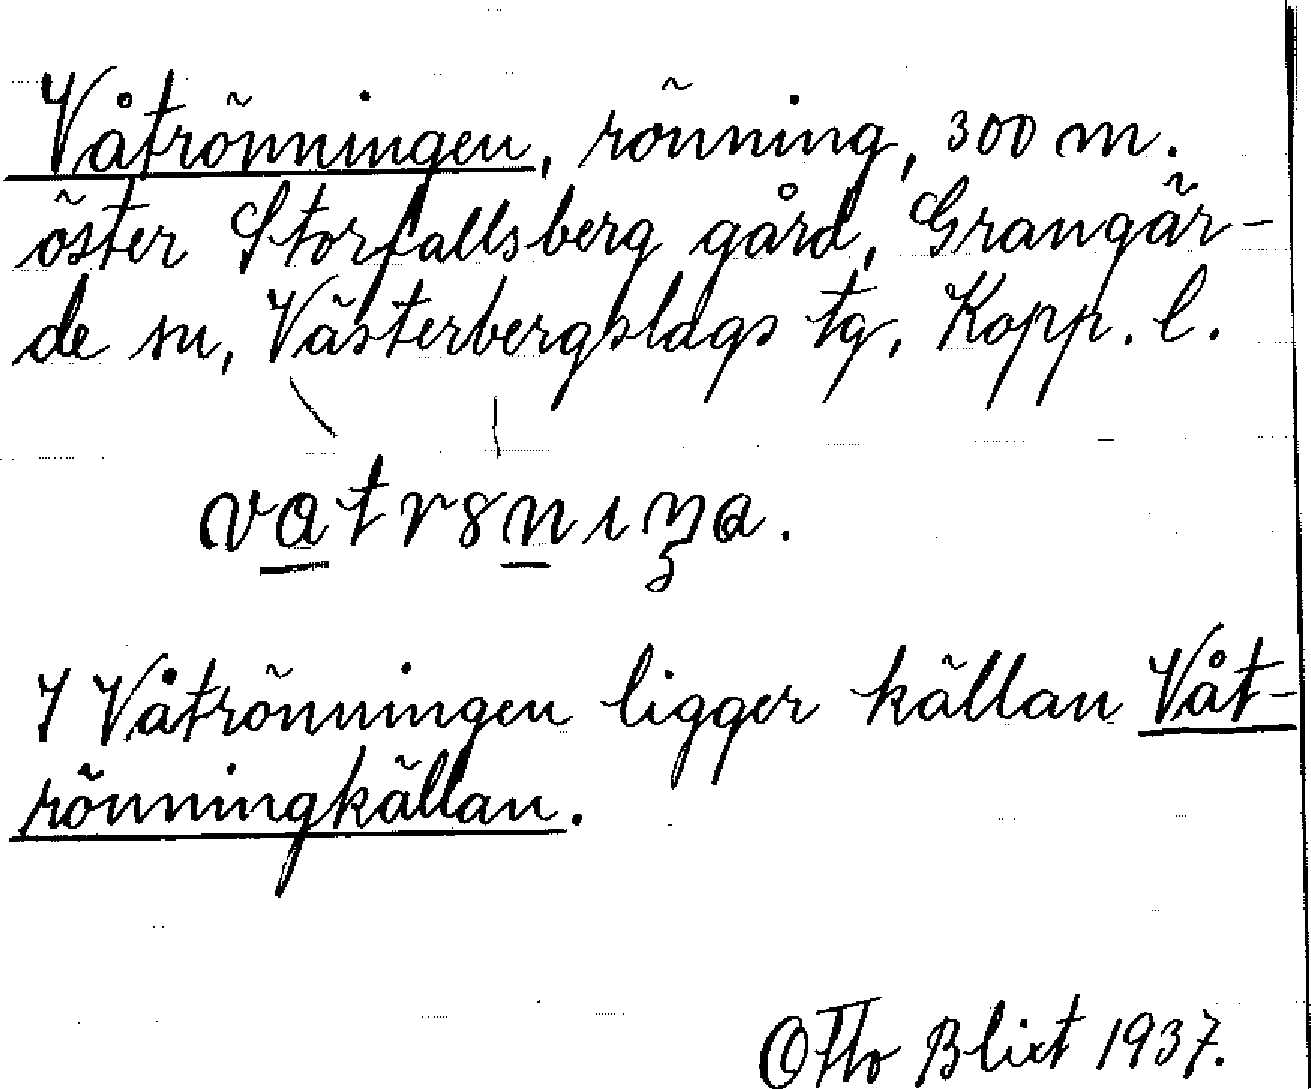 Våtrönningen, rönning, 300 m.
öster Storfallsberg gård, Grangär-
de sn, Västerbergslags tg, Kopp. l.
vatrɞnɩŋa.
I Våtrönningen ligger källan Våt-
rönningkällan.
Otto Blixt 1937.